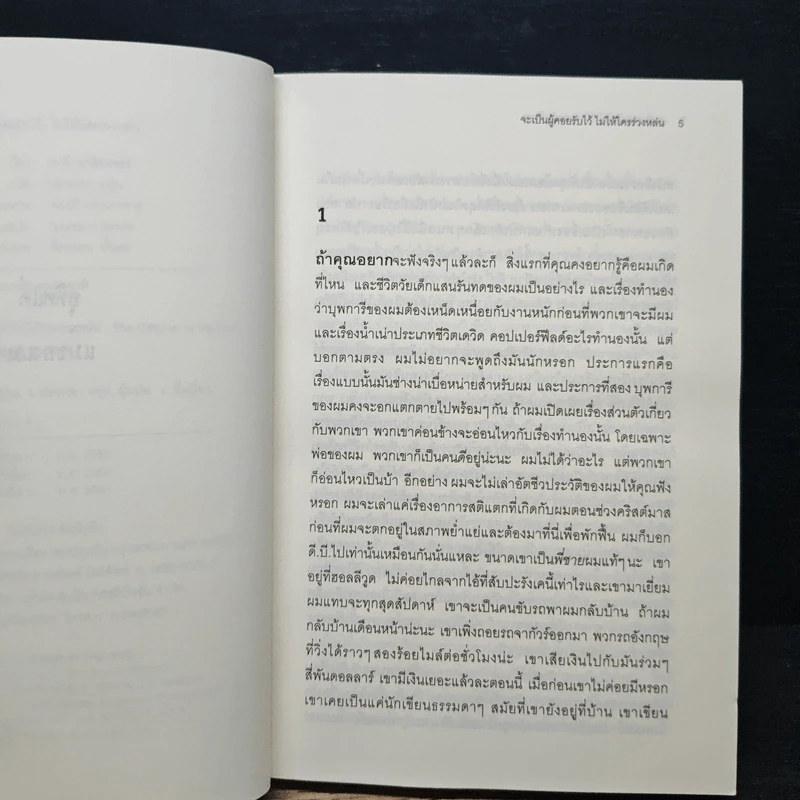 จะเป็นผู้คอยรับไว้ ไม่ให้ใครร่วงหล่น 5
1
ถ้าคุณอยากจะฟังจริงๆ แล้วละก็ สิ่งแรกที่คุณคงอยากรู้คือผมเกิด
ที่ไหน และชีวิตวัยเด็กแสนรันทดของผมเป็นอย่างไร และเรื่องทำนอง
ว่าบุพการีของผมต้องเหน็ดเหนื่อยกับงานหนักก่อนที่พวกเขาจะมีผม
และเรื่องน้ำเน่าประเภทชีวิตเดวิด คอปเปอร์ฟีลด์อะไรทำนองนั้น แต่
บอกตามตรง ผมไม่อยากจะพูดถึงมันนักหรอก ประการแรกคือ
เรื่องแบบนั้นมันช่างน่าเบื่อหน่ายสำหรับผม และประการที่สอง บุพการี
ของผมคงจะอกแตกตายไปพร้อมๆ กัน ถ้าผมเปิดเผยเรื่องส่วนตัวเกี่ยว
กับพวกเขา พวกเขาค่อนข้างจะอ่อนไหวกับเรื่องทำนองนั้น โดยเฉพาะ
พ่อของผม พวกเขาก็เป็นคนดีอยู่น่ะนะ ผมไม่ได้ว่าอะไร แต่พวกเขา
ก็อ่อนไหวเป็นบ้า อีกอย่าง ผมจะไม่เล่าอัตชีวประวัติของผมให้คุณฟัง
หรอก ผมจะเล่าแค่เรื่องอาการสติแตกที่เกิดกับผมตอนช่วงคริสต์มาส
ก่อนที่ผมจะตกอยู่ในสภาพย่ำแย่และต้องมาที่นี่เพื่อพักฟื้น ผมก็บอก
ดี.บี.ไปเท่านั้นเหมือนกันนั่นแหละ ขนาดเขาเป็นพี่ชายผมแท้ๆ นะ เขา
อยู่ที่ฮอลลีวูด ไม่ค่อยไกลจากไอ้ที่สับปะรังเคนี้เท่าไรและเขามาเยี่ยม
ผมแทบจะทุกสุดสัปดาห์ เขาจะเป็นคนขับรถพาผมกลับบ้าน ถ้าผม
กลับบ้านเดือนหน้าน่ะนะ เขาเพิ่งถอยรถจากัวร์ออกมา พวกรถอังกฤษ
ที่วิ่งได้ราวๆ สองร้อยไมล์ต่อชั่วโมงน่ะ เขาเสียเงินไปกับมันร่วมๆ
สี่พันดอลลาร์ เขามีเงินเยอะแล้วละตอนนี้ เมื่อก่อนเขาไม่ค่อยมีหรอก
เขาเคยเป็นแค่นักเขียนธรรมดาๆ สมัยที่เขายังอยู่ที่บ้าน เขาเขียน